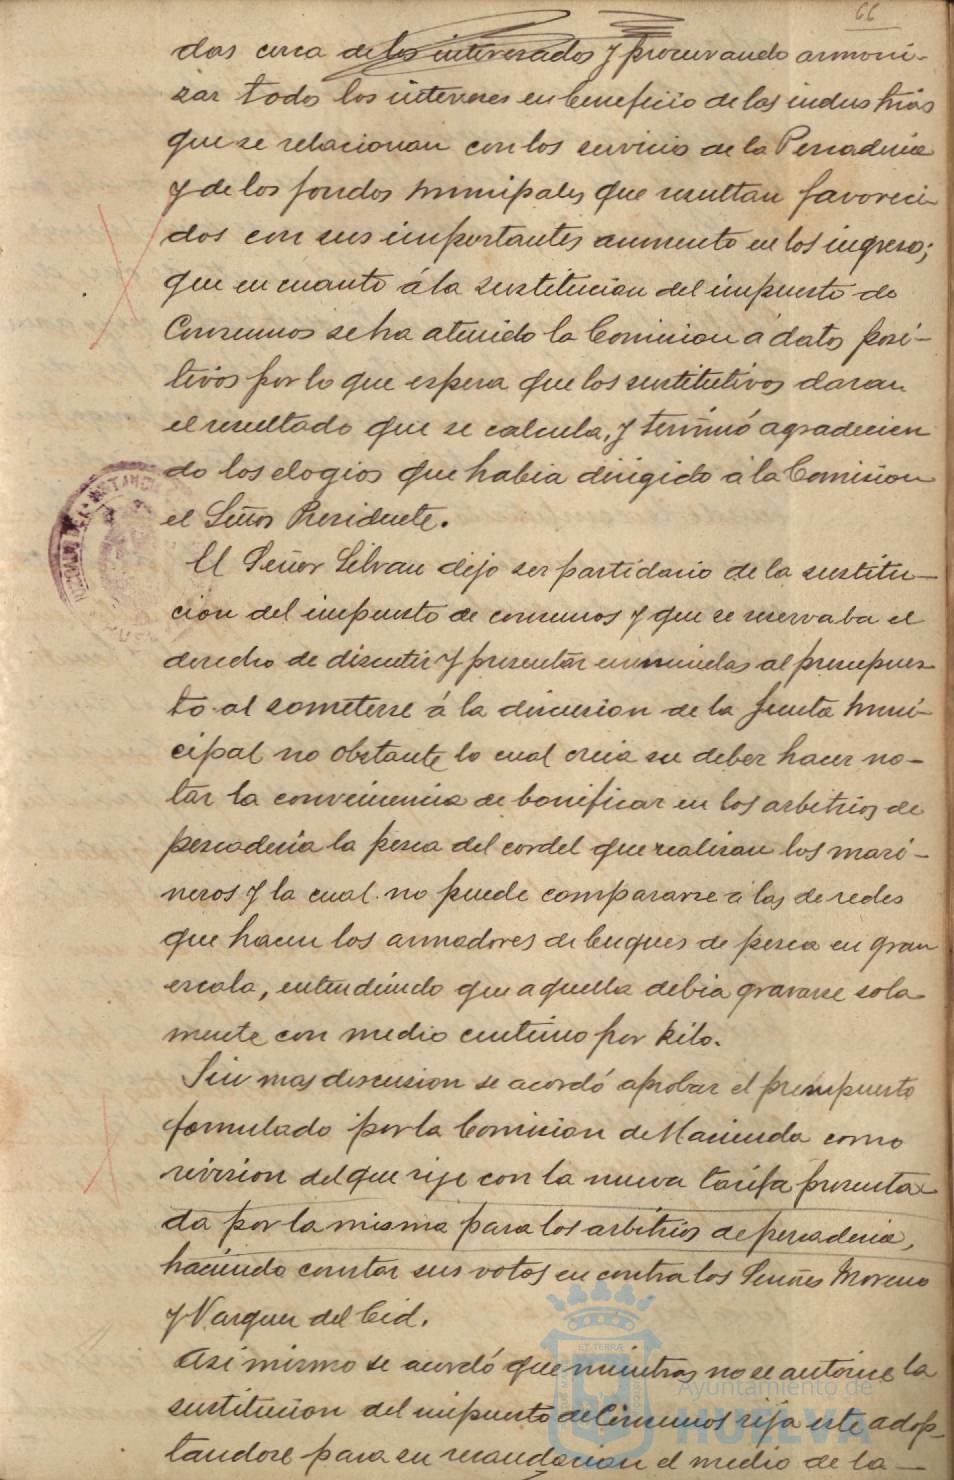 66
das cerca de los interesados y procurando armoni-
zar todos los intereses en beneficio de las industrias
que se relacionan con los servicios de la Pescaderia
y de los fondos municipales que resultan favoreci-
dos con sus importantes aumento en los ingresos;
que en cuanto á la sustitucion del impuesto de
Consumos se ha atenido la Comision á datos posi-
tivos por lo que espera que los sustitutivos daran
el resultado que se calcula, y terminó agradecien
do los elogios que habia dirigido á la Comision
el Señor Presidente.
El Señor Silvan dijo ser partidario de la sustitu-
cion del impuesto de consumos y que se reservaba el
derecho de discutir y presentar enmiendas al presupues
to al someterse á la discusion de la Junta Muni-
cipal no obstante lo cual creia su deber hacer no-
tar la conveniencia de bonificar en los arbitrios de
pescaderia la pesca del cordel que realizan los mari-
neros y la cual no puede compararse á las de redes
que hacen los armadores de buques de pesca en gran
escala, entendiendo que aquella debia gravarse sola
mente con medio centimo por kilo.
Sin mas discusion se acordó aprobar el presupuesto
formulado por la Comision de Hacienda como
revision del que rije con la nueva tarifa presenta
da por la misma para los arbitrios de pescaderia,
haciendo constar sus votos en contra los Señores Moreno
y Vazquez del Cid.
Asi mismo se acordó que mientras no se autorice la
sustitucion del impuesto de Consumos rija este adop-
tandose para su recaudacion el medio de la
ET TERRÆ
Ayuntamiento de
HUELVA